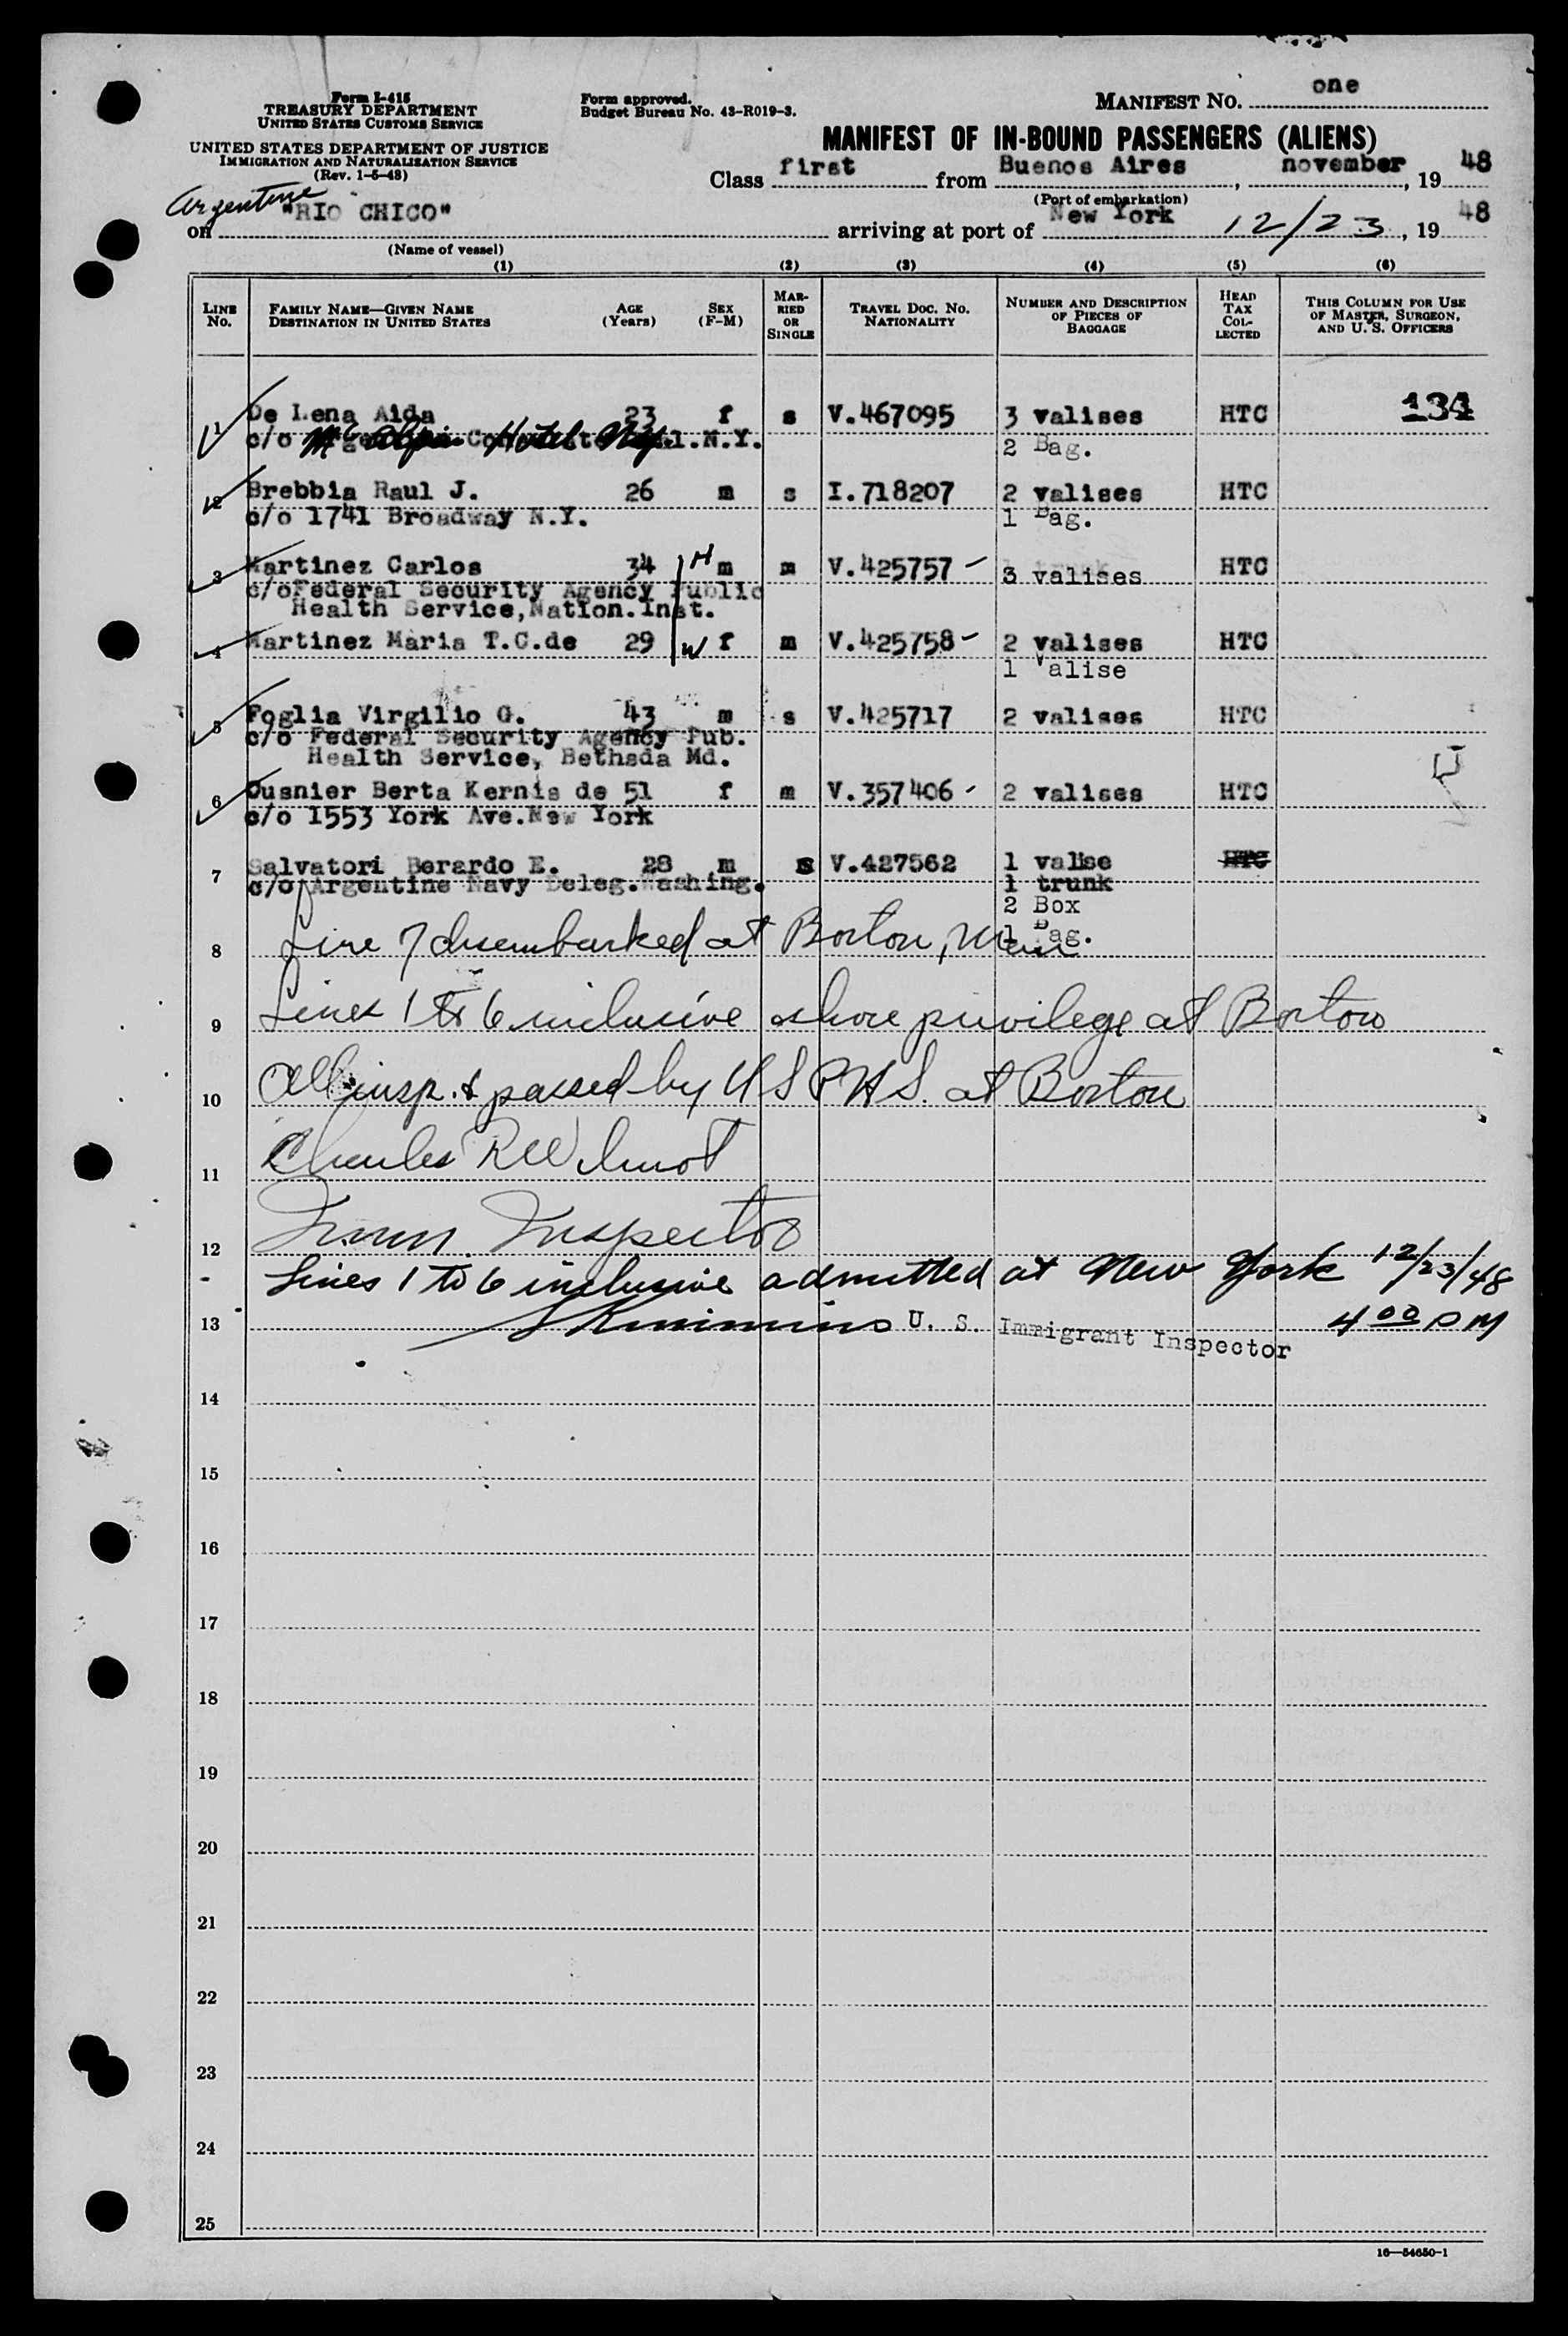 Form I-415
TREASURY DEPARTMENT
UNITED STATES CUSTOMS SERVICE
UNITED STATES DEPARTMENT OF JUSTICE
IMMIGRATION AND NATURALIZATION SERVICE
(Rev. 1-5-48)
Form approved.
Budget Bureau No. 43-R019-3.
MANIFEST NO. one
MANIFEST OF IN-BOUND PASSENGERS (ALIENS)
Class first from Buenos Aires, november, 1948
(Port of embarkation)
Argentine
on "RIO CHICO" arriving at port of New York 12/23, 1948
(Name of vessel)
(1) (2) (3) (4) (5) (6)
LINE No. FAMILY NAME—GIVEN NAME DESTINATION IN UNITED STATES AGE (Years) SEX (F-M) MARRIED OR SINGLE TRAVEL DOC. NO. NATIONALITY NUMBER AND DESCRIPTION OF PIECES OF BAGGAGE HEAD TAX COLLECTED THIS COLUMN FOR USE OF MASTER, SURGEON, AND U. S. OFFICERS
1 De Lena Aida 23 f s V.467095 3 valises HTC 134
c/o McAlpin Hotel N.Y. 2 Bag.
2 Brebbia Raul J. 26 m s I.718207 2 valises HTC
c/o 1741 Broadway N.Y. 1 Bag.
3 Martinez Carlos 34 H m m V.425757 - 3 valises HTC
c/oFederal Security Agency Public
Health Service,Nation.Inst.
4 Martinez Maria T.C.de 29 W f m V.425758 - 2 valises HTC
1 Valise
5 Foglia Virgilio G. 43 m s V.425717 2 valises HTC
c/o Federal Security Agency Pub.
Health Service, Bethsda Md.
6 Cusnier Berta Kernis de 51 f m V.357406 - 2 valises HTC
c/o 1553 York Ave.New York
7 Salvatori Berardo E. 28 m s V.427562 1 valise HTC
c/o Argentine Navy Deleg.Washing. 1 trunk
2 Box
1 Bag.
8 Line 7 disembarked at Boston, Mass
9 Lines 1 to 6 inclusive shore privilege at Boston
10 All insp. & passed by USPHS. at Boston
11 Charles R Wilmot
12 Immn. Inspector
Lines 1 to 6 inclusive admitted at New York 12/23/48
13 U. S. Immigrant Inspector 4 00 PM
14
15
16
17
18
19
20
21
22
23
24
25
16—54650-1